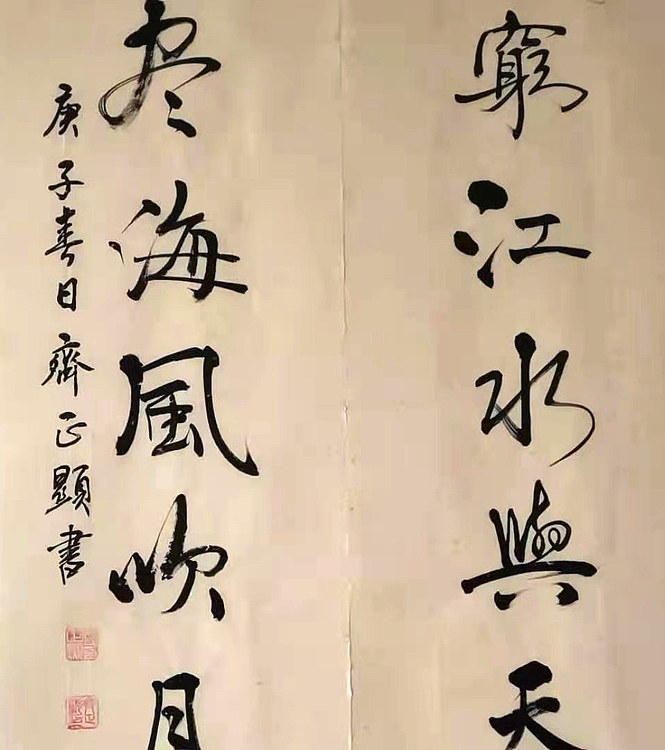 窮江水與天
尽海風吹月
庚子春日齊正顯書